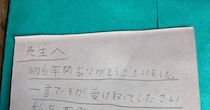 先生へ
約6年間ありがとうございました。
一言ですが受け取ってください
私を